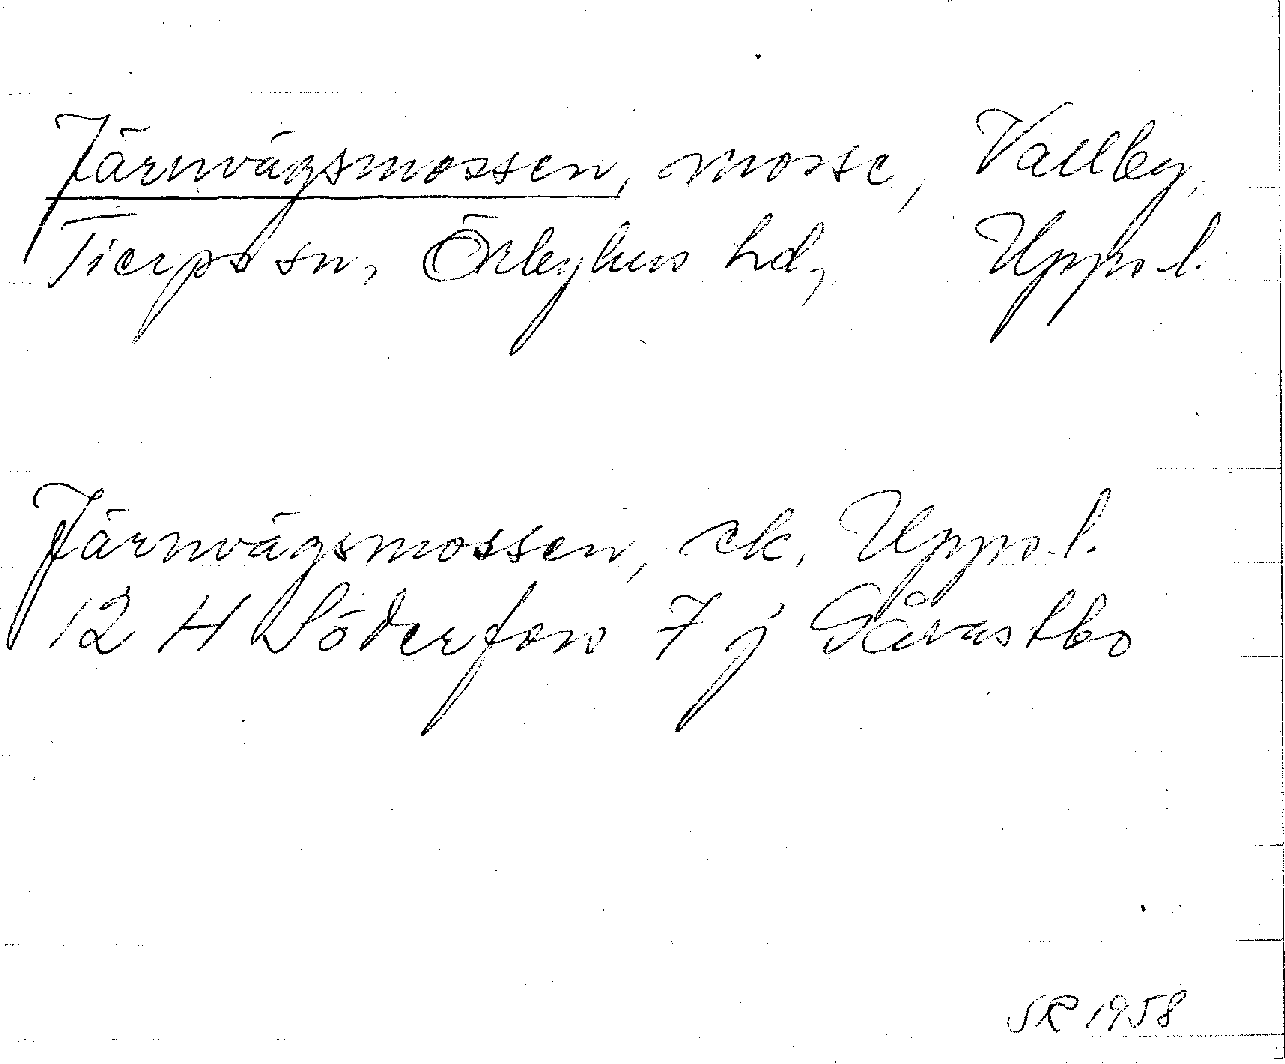 Järnvägsmossen, mosse, Vallby,
Tierps sn, Örbyhus hd, Upps. l.
Järnvägsmossen, ek. Upps. l.
12 H Söderfors 7 j Gåvastbo
SR 1958